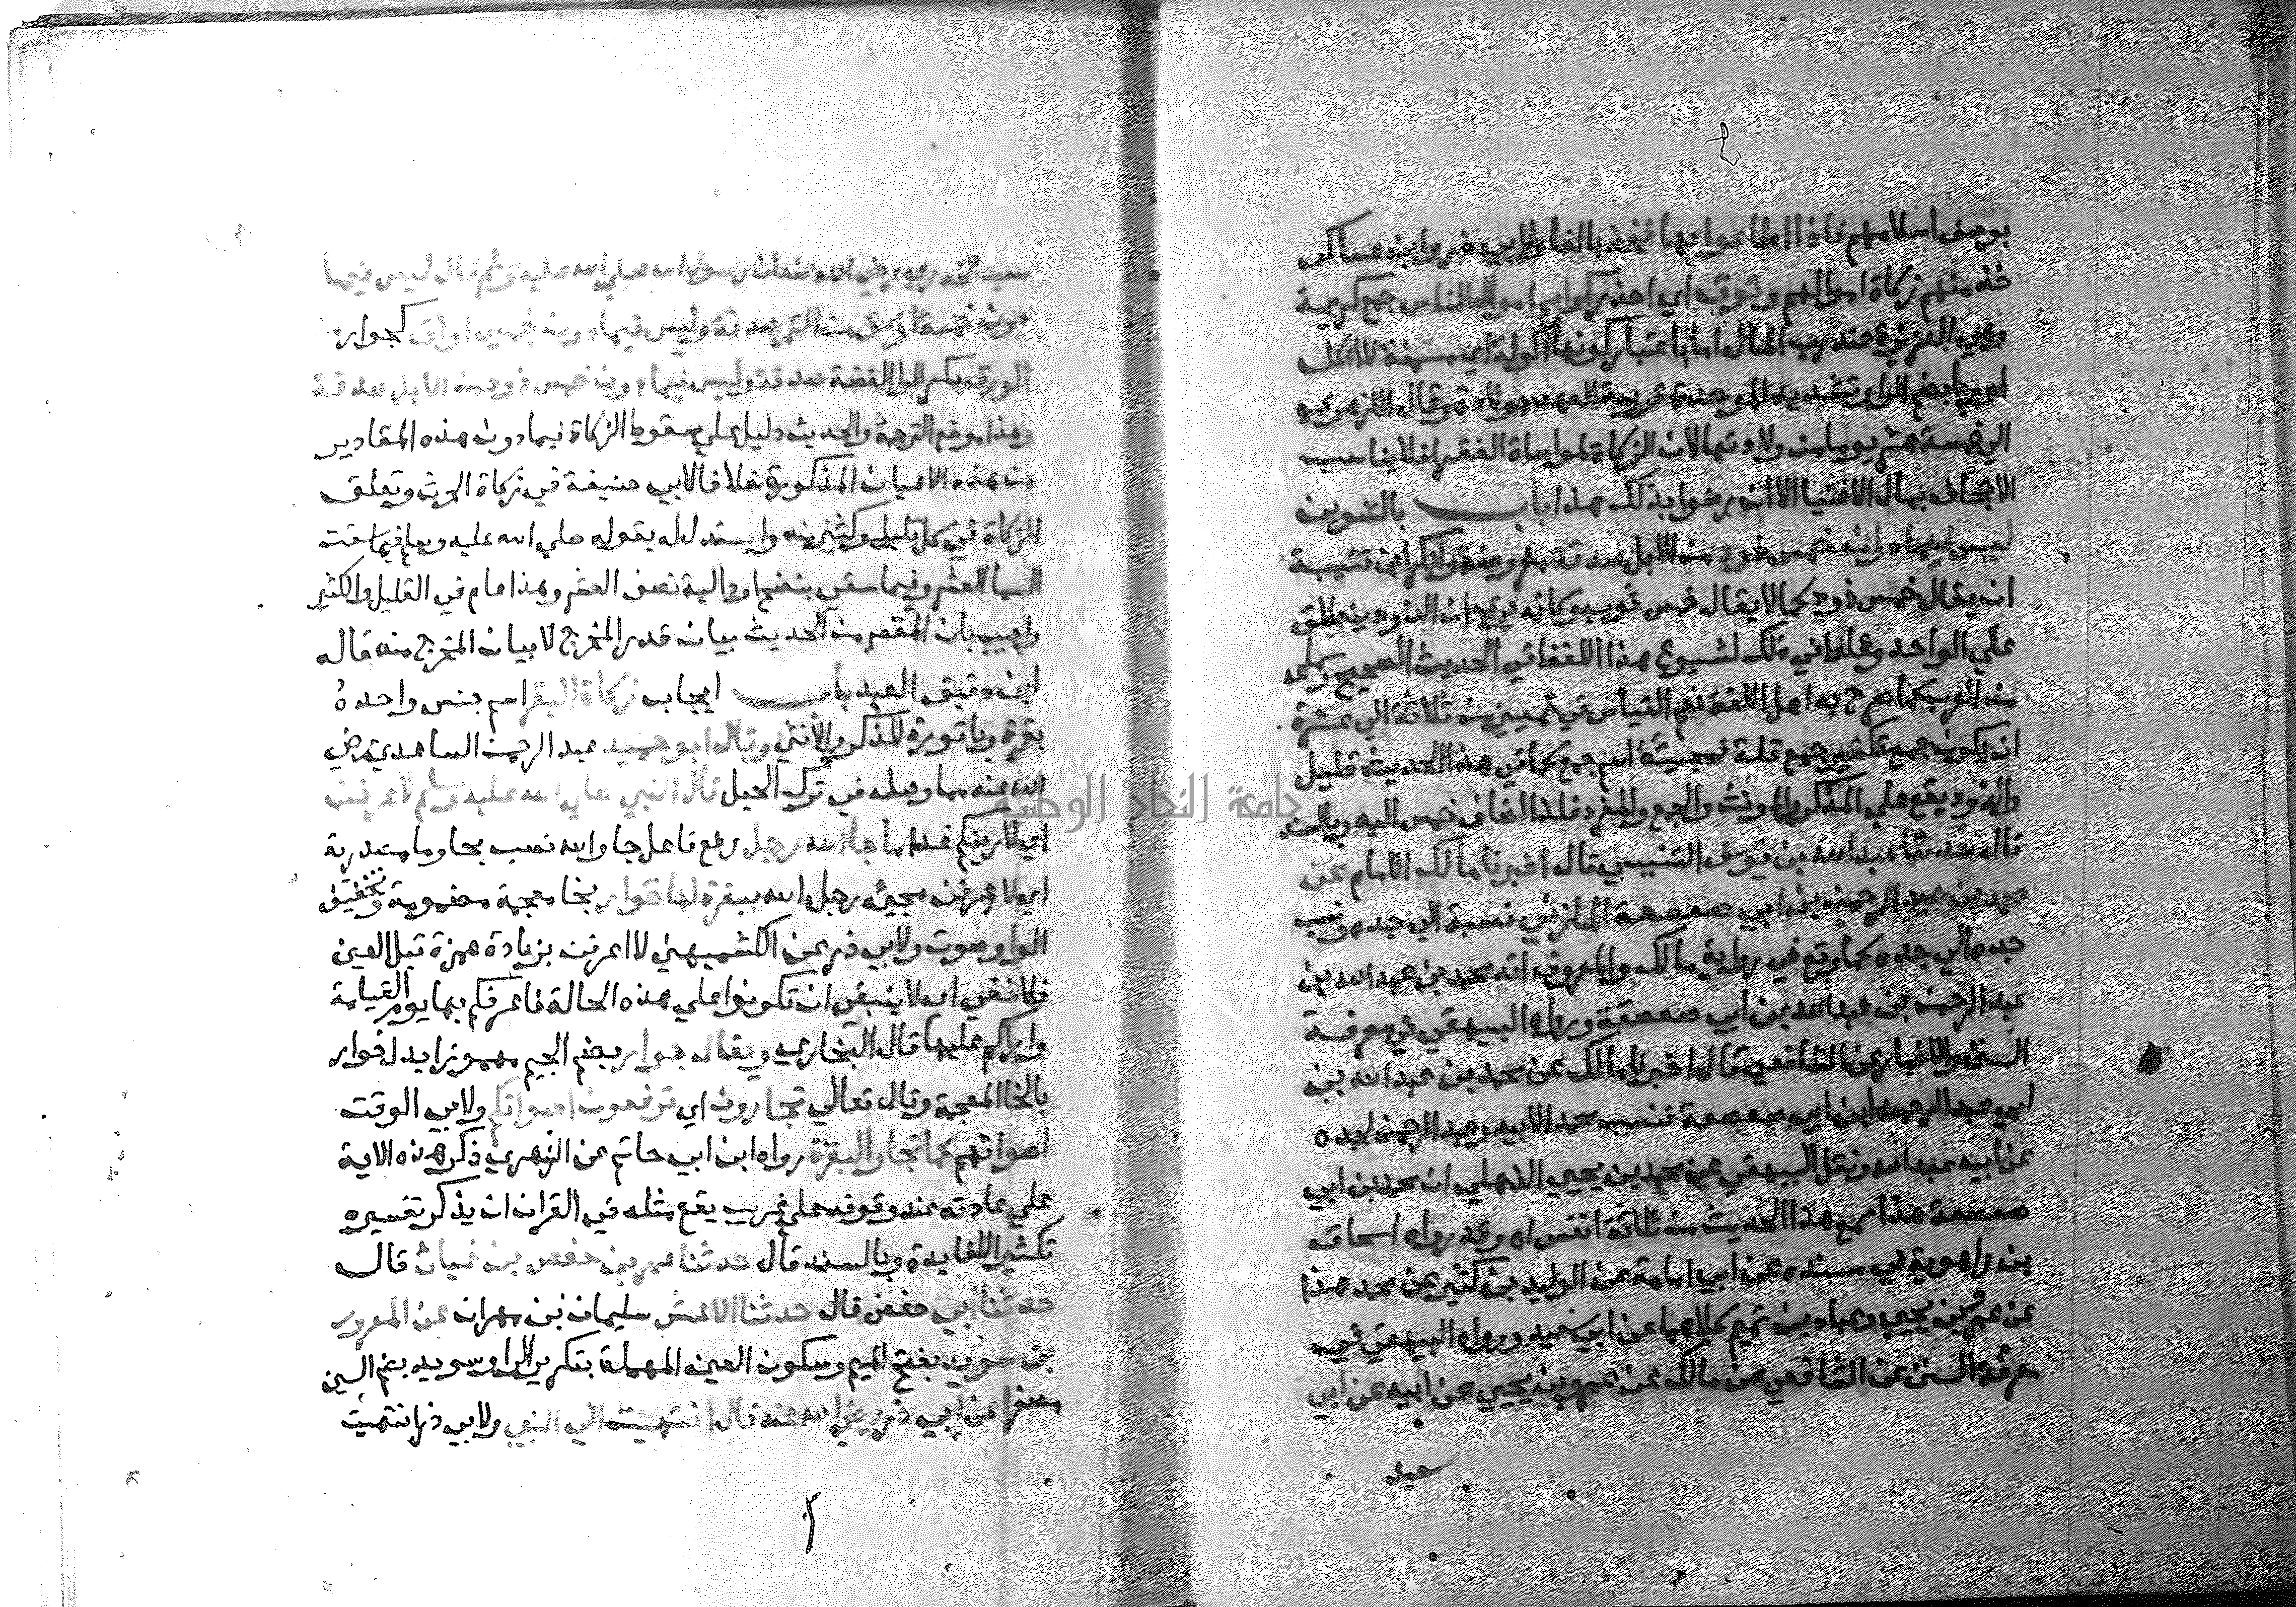 بوصف اسلامهم فاذا اطاعوا بها فخذ بالفا ولابي ذر وابن عساكر
خذ منهم زكاة اموالهم وتوق اي احذر كرايم اموال الناس جمع كريمة
وهي العزيزة عند رب المال اما باعتبار كونها اكولة اي مسمنة للاكل
اوربا بضم الرا وتشديد الموحدة قريبة العهد بولادة وقال الازهري
الي خمسة عشر يوما من ولادتها لان الزكاة لمواساة الفقرا فلا يناسب
الاجحاف بمال الاغنيا الا ان رضوا بذلك هذا باب بالتنوين
ليس فيما دون خمس ذود من الابل صدقة مفروضة وانكر ابن قتيبة
ان يقال خمس ذود كما لا يقال خمس ثوب وكانه يري ان الذود ينطلق
علي الواحد وغلط في ذلك لشيوع هذا اللفظ في الحديث الصحيح وسماعه
من العرب كما صرح به اهل اللغة نعم القياس في تمييز من ثلاثة الي عشرة
ان يكون جمع تكسير جمع قلة فمجيئه اسم جمع كما في هذا الحديث قليل
والذود يقع علي المذكر والمونث والجمع والمفرد فلذا اضاف خمس اليه وبالسند
قال حدثنا عبد الله بن يوسف التنيسي قال اخبرنا مالك الامام عن
محمد بن عبد الرحمن بن ابي صعصعة المازني نسبة الي جده ونسب
جده الي جده كما وقع في رواية مالك والمعروف انه محمد بن عبد الله بن
عبد الرحمن بن عبد الله بن ابي صعصعة ورواه البيهقي في معرفة
السنن والاخبار عن الشافعي قال اخبرنا مالك عن محمد بن عبد الله بن
ابي عبد الرحمن ابن ابي صعصعة فنسب محمد الابيه وعبد الرحمن لجده
عن ابيه عبد الله ونقل البيهقي عن محمد بن يحيي الذهلي ان محمد بن ابي
صعصعة هذا سمع هذا الحديث من ثلاثة انفس اه وقد رواه اسحاق
بن راهوية في مسنده عن ابي اسامة عن الوليد بن كثير عن محمد هذا
عن عمرو بن يحيي وعباد بن تميم كلاهما عن ابي سعيد ورواه البيهقي في
معرفة السنن عن الشافعي عن مالك عن عمرو بن يحيي عن ابيه عن ابي
سعيد
سعيد الخدري رضي الله عنه ان رسول الله صلي الله عليه وسلم قال ليس فيما
دون خمسة اوسق من التمر صدقة وليس فيما دون خمس اواق كجوار من
الورق بكسر الرا الفضة صدقة وليس فيما دون خمس ذود من الابل صدقة
وهذا موضع الترجمة والحديث دليل علي سقوط الزكاة فيما دون هذه المقادير
من هذه الاعيان المذكورة خلافا لابي حنيفة في زكاة الحرث وتعلق
الزكاة في كل قليل وكثير منه واستدل له بقوله صلي الله عليه وسلم فيما سقت
السما العشر وفيما سقي بنضح او دالية نصف العشر وهذا عام في القليل والكثير
واجيب بان المقصود من الحديث بيان قدر المخرج لا بيان المخرج منه قاله
ابن دقيق العيد باب ايجاب زكاة البقر اسم جنس واحده
بقرة وباقورة للمذكر والانثي وقال ابو حميد عبد الرحمن الساعدي رضي
الله عنه مما وصله في ترك الحيل قال النبي صلي الله عليه وسلم لاعرفن
اي لارينكم غدا ما جا الله رجل رفع فاعل جا والله نصب بجا وما مصدرية
اي لاعرفن مجيء رجل الله ببقرة لها خوار بخا معجمة مضمومة وتخفيف
الواو صوت ولابي ذر عن الكشميهني لا اعرفن بزيادة همزة قبل العين
فلا نفي اي لا ينبغي ان تكونوا علي هذه الحالة فاعرفكم بها يوم القيامة
واراكم عليها قال البخاري ويقال جوار بضم الجيم مهموز ا بدل خوار
بالخا المعجمة وقال تعالي تجارون اي ترفعون اصواتكم ولابي الوقت
اصواتهم كما تجار البقرة رواه ابن ابي حاتم عن الزهري ذكر هذه الاية
علي عادته عند وقوفه علي غريب يقع مثله في القران ان يذكر تفسيره
تكثير اللفايدة وبالسند قال حدثنا عمر بن حفص بن غياث قال
حدثنا ابي حفص قال حدثنا الاعمش سليمان بن مهران عن المعرور
بن سويد بفتح الميم وسكون العين المهملة بتكرير الرا وسويد بضم السين
مصغرا عن ابي ذر رضي الله عنه قال انتهيت الي النبي ولابي ذر انتهيت
جامعة النجاح الوطنية